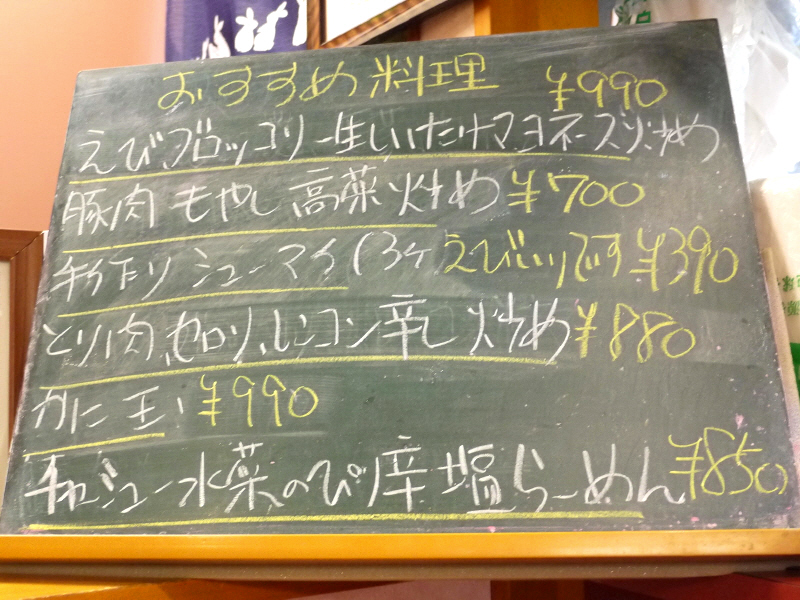 おすすめ料理 ¥990
えび、ブロッコリー生しいたけマヨネーズ炒め
豚肉 もやし 高菜 炒め ¥700
手作り シューマイ (3ヶ えび入りです ¥390
とり肉、セロリ、レンコン 辛し 炒め ¥880
かに玉 ¥990
チャーシュー水菜のピリ辛塩らーめん ¥850